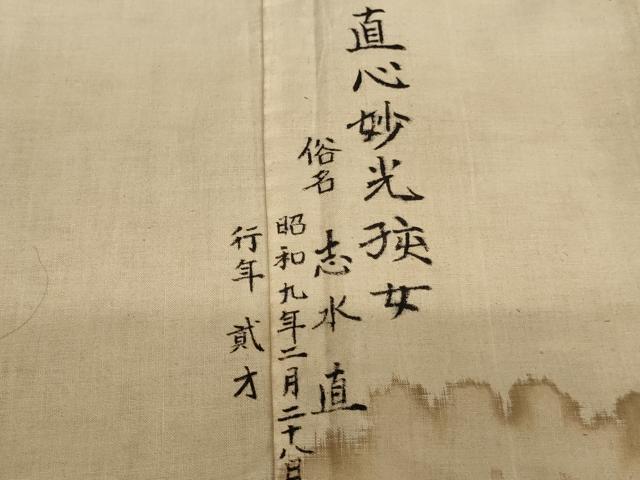 直心妙光孩女
俗名 志水直
昭和九年二月二十八日
行年 貳才